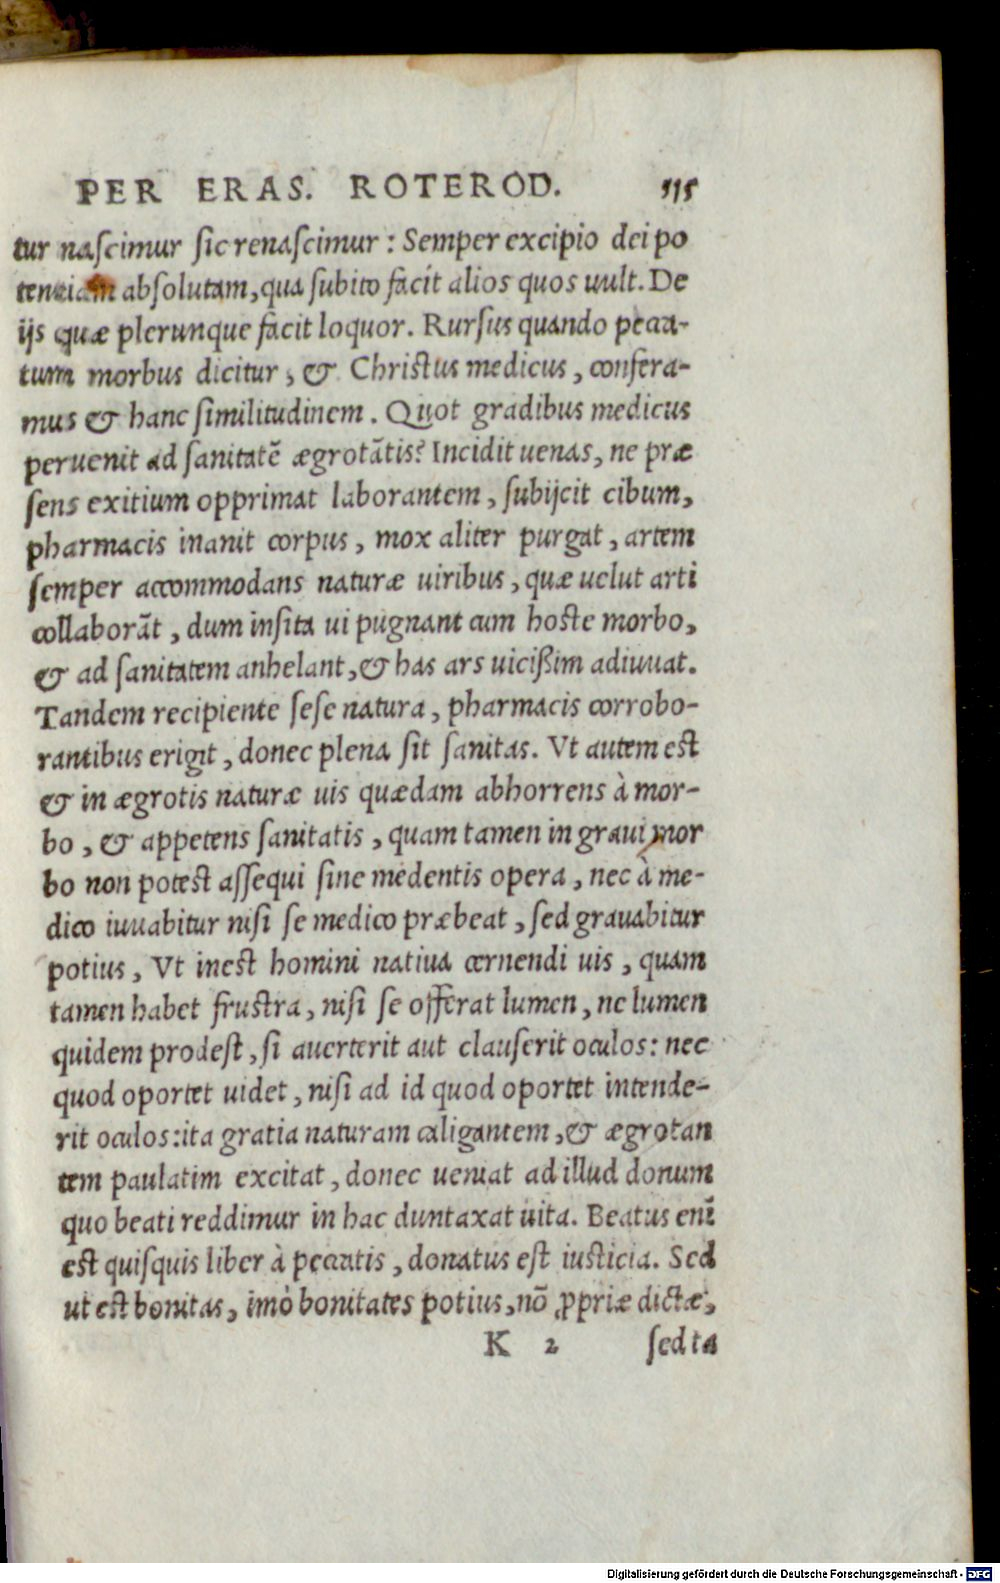 PER ERAS. ROTEROD. 115
tur nascimur sic renascimur : Semper excipio dei po
tentiam absolutam, qua subito facit alios quos uult. De
ijs quæ plerunque facit loquor. Rursus quando pecca-
tum morbus dicitur, & Christus medicus, confera-
mus & hanc similitudinem. Quot gradibus medicus
peruenit ad sanitatẽ ægrotãtis? Incidit uenas, ne præ
sens exitium opprimat laborantem, subijcit cibum,
pharmacis inanit corpus, mox aliter purgat, artem
semper accommodans naturæ uiribus, quæ uelut arti
collaborãt, dum insita ui pugnant cum hoste morbo,
& ad sanitatem anhelant, & has ars uicißim adiuuat.
Tandem recipiente sese natura, pharmacis corrobo-
rantibus erigit, donec plena sit sanitas. Vt autem est
& in ægrotis naturæ uis quædam abhorrens à mor-
bo, & appetens sanitatis, quam tamen in graui mor
bo non potest assequi sine medentis opera, nec à me-
dico iuuabitur nisi se medico præbeat, sed grauabitur
potius, Vt inest homini natiua cernendi uis, quam
tamen habet frustra, nisi se offerat lumen, ne lumen
quidem prodest, si auerterit aut clauserit oculos: nec
quod oportet uidet, nisi ad id quod oportet intende-
rit oculos: ita gratia naturam caligantem, & ægrotan
tem paulatim excitat, donec ueniat ad illud donum
quo beati reddimur in hac duntaxat uita. Beatus enĩ
est quisquis liber à peccatis, donatus est iusticia. Sed
ut est bonitas, imò bonitates potius, nõ ꝓpriæ dictæ,
K 2 sed ta
Digitalisierung gefördert durch die Deutsche Forschungsgemeinschaft - DFG